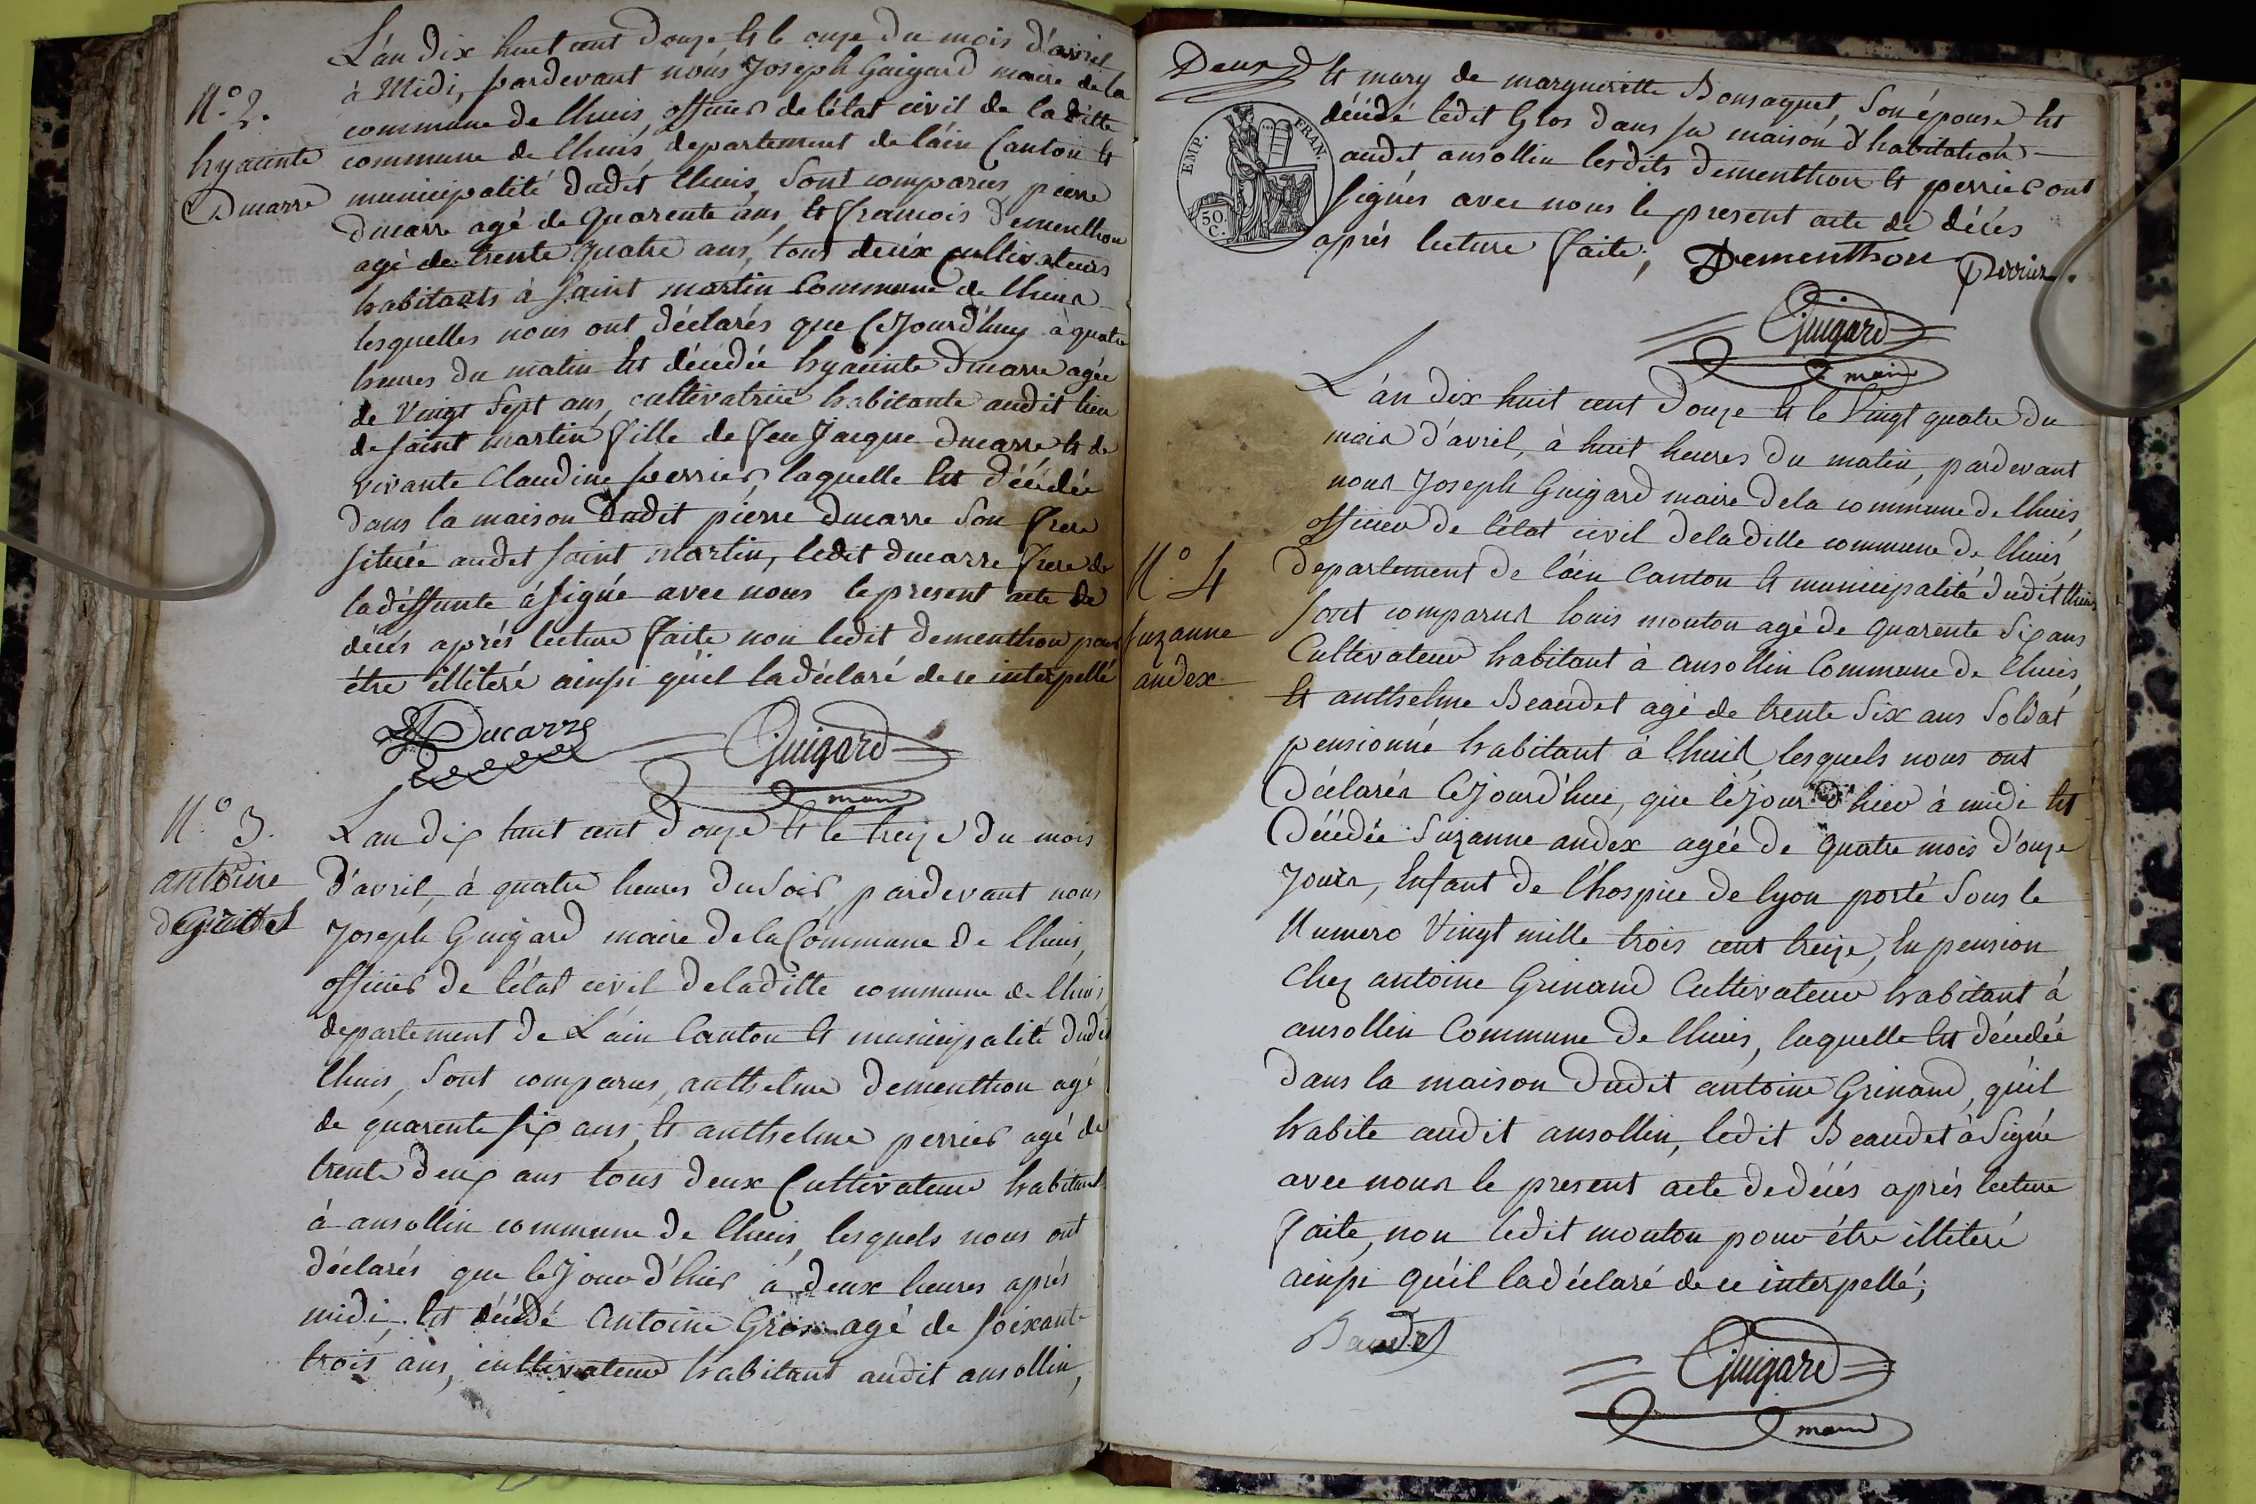 L'an dix huit cent douze et le onze du mois d'avril
à Midi, pardevant nous Joseph Guigard maire de la
commune de lhuis, officier de l'état civil de la ditte
commune de lhuis, departement de l'ain Canton et
municipalité dudit lhuis, Sont comparus pierre
Ducarre agé de quarente ans, et francois Dementhon
agé de trente quatre ans, tous deux Cultivateurs
habitants à saint martin Commune de lhuis
lesquelles nous ont déclarés que Cejourd'huy à quatre
heures du matin est décédée hyacinte Ducarre agée
de Vingt Sept ans, cultivatrice habitante audit lieu
de saint martin fille de feu Jacque Ducarre et de
vivante Claudine perrier, laquelle est décédée
dans la maison dudit pierre Ducarre Son frere
située audit saint martin, ledit ducarre frere de
la déffunte à signé avec nous le present acte de
décés aprés lecture faite non ledit dementhon pour
être illiteré ainsi qu'il la déclaré de ce interpellé
Ducarre
Guigard
maire
N.° 2.
hyacinte
Ducarre
N.° 3.
antoine
L'an dix huit cent douze et le treize du mois
d'avril, à quatre heures du Soir, pardevant nous
Joseph Guigard maire de la Commune de lhuis,
officier de l'état civil de laditte commune de lhuis,
departement de L'ain Canton et municipalité dudit
lhuis, Sont comparus, anthelme dementhon agé
de quarente six ans, et anthelme perrier agé de
trente deux ans tous deux Cultivateur habitant
à ansollin commune de lhuis, lesquels nous ont
déclarés que le Jour d'hier à deux heures aprés
midi, est décédé Antoine Gros agé de soixante
trois ans, cultivateur habitant audit ansollin,
Deux
EMP. FRAN.
50.
C.
et mary de margueritte Bonsaquet, Son épouse et
décédé ledit Gros dans sa maison d'habitation
audit ansollin lesdits dementhon et perrier ont
signés avec nous le present acte de décés
aprés lecture faite;
Dementhon
Perrier
Guigard
maire
N.° 4
suzanne
andex
L'an dix huit cent douze et le Vingt quatre du
mois d'avril, à huit heures du matin, pardevant
nous Joseph Guigard maire de la commune de lhuis,
officier de l'état civil de laditte commune de lhuis,
departement de l'ain Canton et municipalité dudit lhuis
sont comparus louis mouton agé de quarente six ans
Cultivateur habitant à ansollin Commune de lhuis,
et anthelme Beaudet agé de trente six ans Soldat
pensionné habitant à lhuis, lesquels nous ont
Déclarés Cejourd'hui, que le jour d'hier à midi est
Décédée Suzanne andex agée de quatre mois d'onze
Jours, Enfant de l'hospice de lyon porté Sous le
Numero Vingt mille trois cent treize, En pension
chez antoine Grinand Cultivateur habitant à
ansollin Commune de lhuis, laquelle est décédée
dans la maison dudit antoine Grinand, qu'il
habite audit ansollin, ledit Beaudet à Signé
avec nous le present acte de décés aprés lecture
faite, non ledit mouton pour être illiteré
ainsi qu'il la déclaré de ce interpellé;
Baudet
Guigard
maire